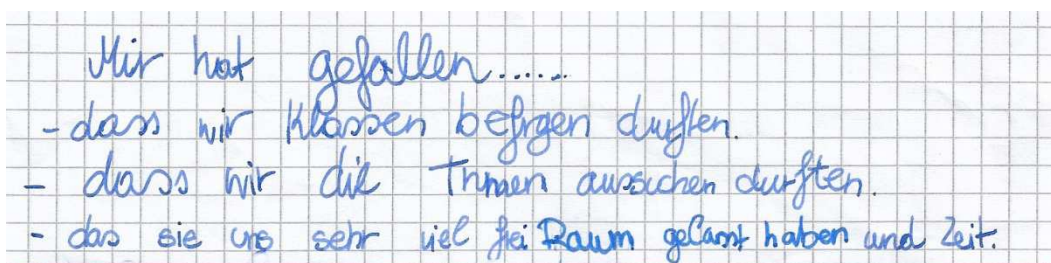 Mir hat gefallen......
- dass wir Klassen befrgen durften.
- dass wir die aussuchen durften.
- das sie uns sehr viel frei Raum gelasst haben und Zeit.